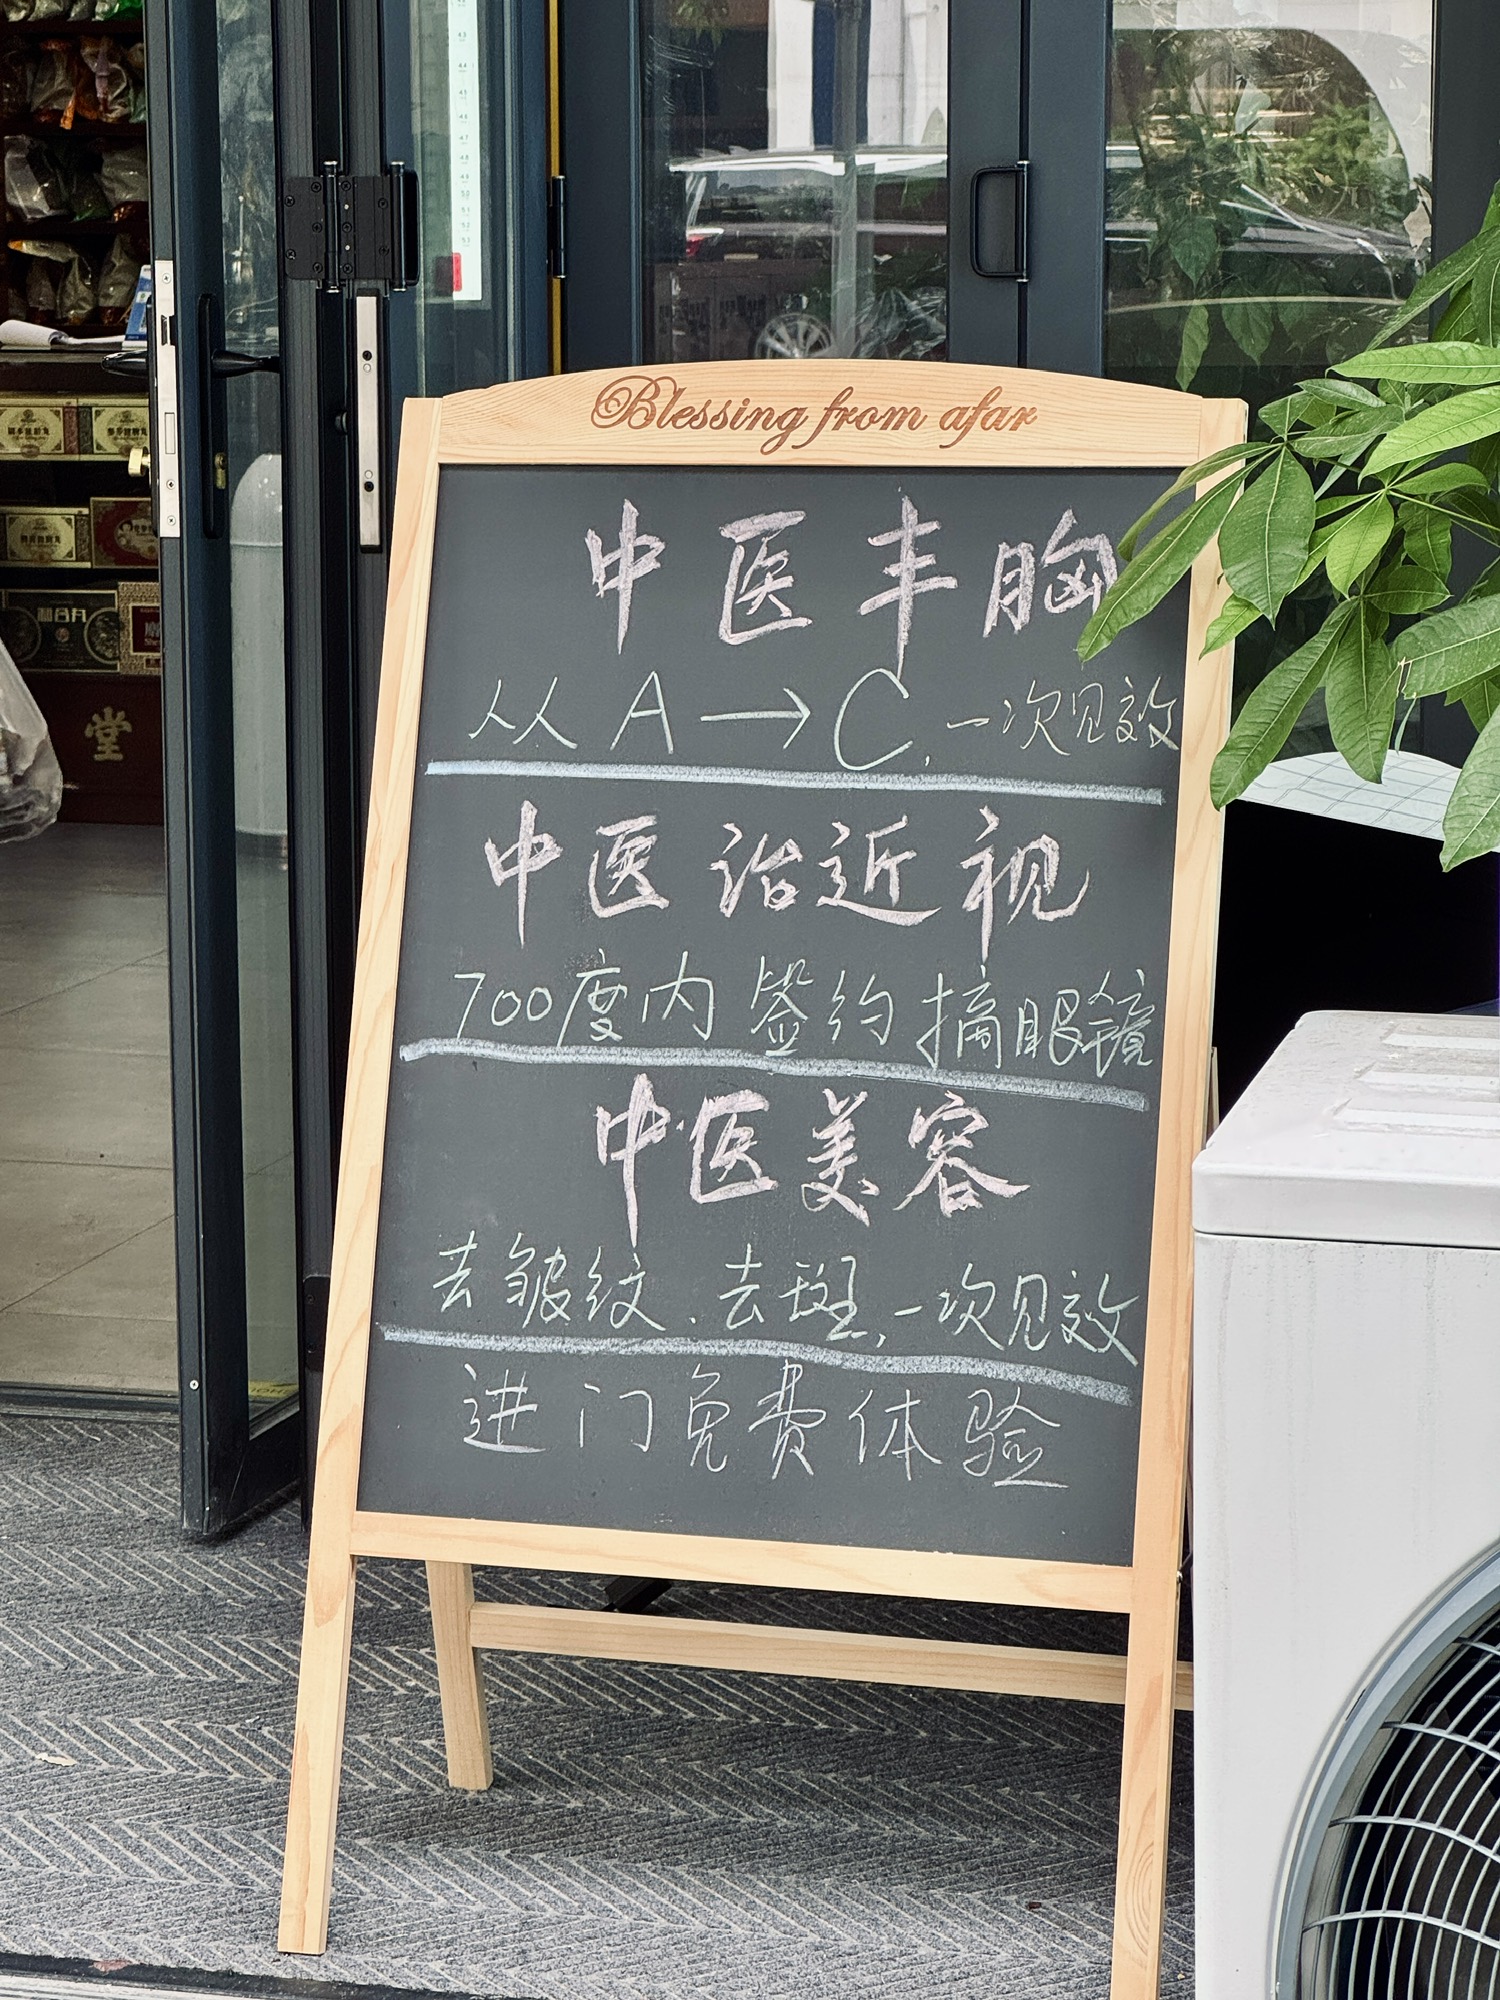 Blessing from afar
中医丰胸
从A→C,一次见效
中医治近视
700度内签约摘眼镜
中医美容
去皱纹、去斑,一次见效
进门免费体验
堂